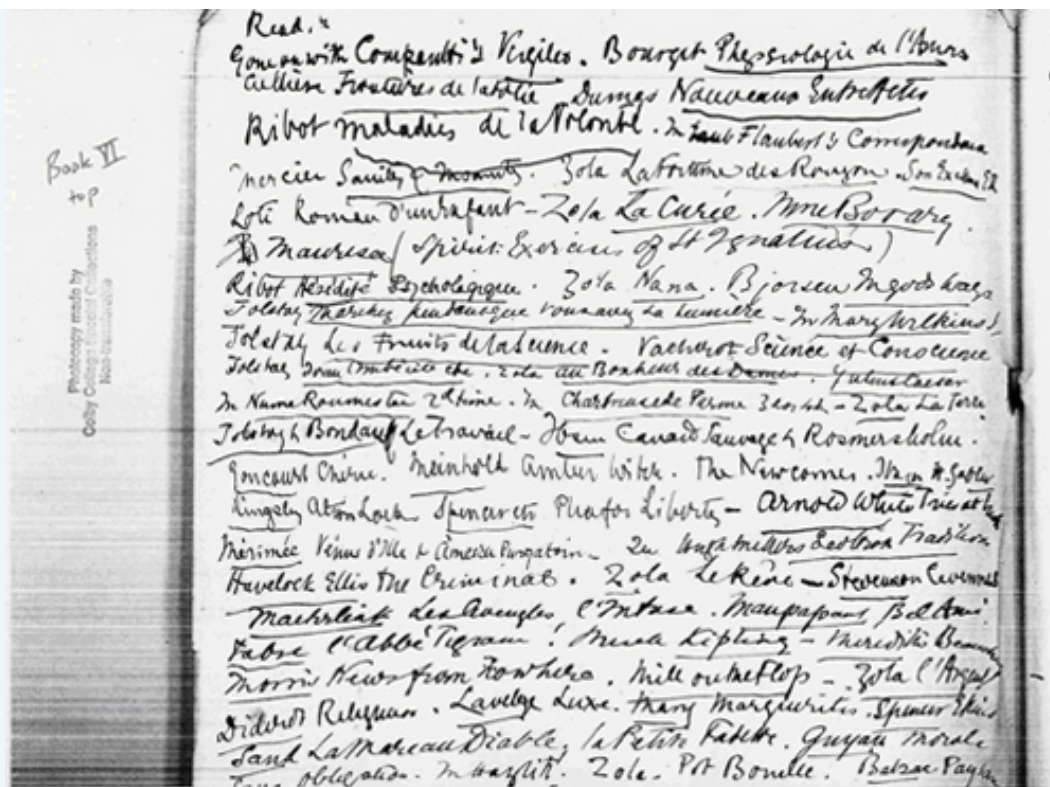 Book VI
top
Photocopy made by
Colby College Special Collections
Read."
Gone on with Comparetti's Virgilio. Bourget Physiologie de l'Amour
Cullère Frontières de la folie Dumas Nouveaux Entr'Actes
Ribot maladies de la Volonté. In Flaubert's Correspondance
Mercier Sanity & Insanity. Zola La Fortune des Rougon. Son Exc.
Loti Roman d'un enfant - Zola La Curée. Mme Bovary.
Mauresa (Spirit: Exercises of St Ignatius)
Ribot Hérédité Psychologique. Zola Nana. Bjorsen In gods ways
Tolstoy Marchez pendant que vous avez la lumière - In Mary Wilkins
Tolstoy Les Fruits de la Science. Vacherot Science et Conscience
Tolstoy Zola au Bonheur des Dames. Julius Caesar
In Numa Roumestan 2d time. In Chartreuse de Parme 3d - Zola La Terre
Tolstoy & Bondareff Le travail - Ibsen Canard Sauvage & Rosmersholm.
Goncourt Chérie. Meinhold Amber Witch. The Newcomes. Ibsen H. Gabler
Kingsley Alton Locke Spencer etc Plea for Liberty - Arnold White Tries at
Mérimée Vénus d'Ille & Âmes du Purgatoire - In
Havelock Ellis The Criminal. Zola Le Rêve - Stevenson Cevennes
Les Aveugles, l'Intruse. Maupassant Bel Ami
Fabre l'Abbé Tigrane! Much Kipling - Meredith
Morris News from Nowhere. Mill on the Floss - Zola l'Argent
Diderot Religieuse. Laveleye Luxe. Many Marguerites. Spencer
Sand La Mare au Diable, la Petite Fadette. Guyau Morale
obligation. In Hazlitt. Zola. Pot Bouille. Balzac